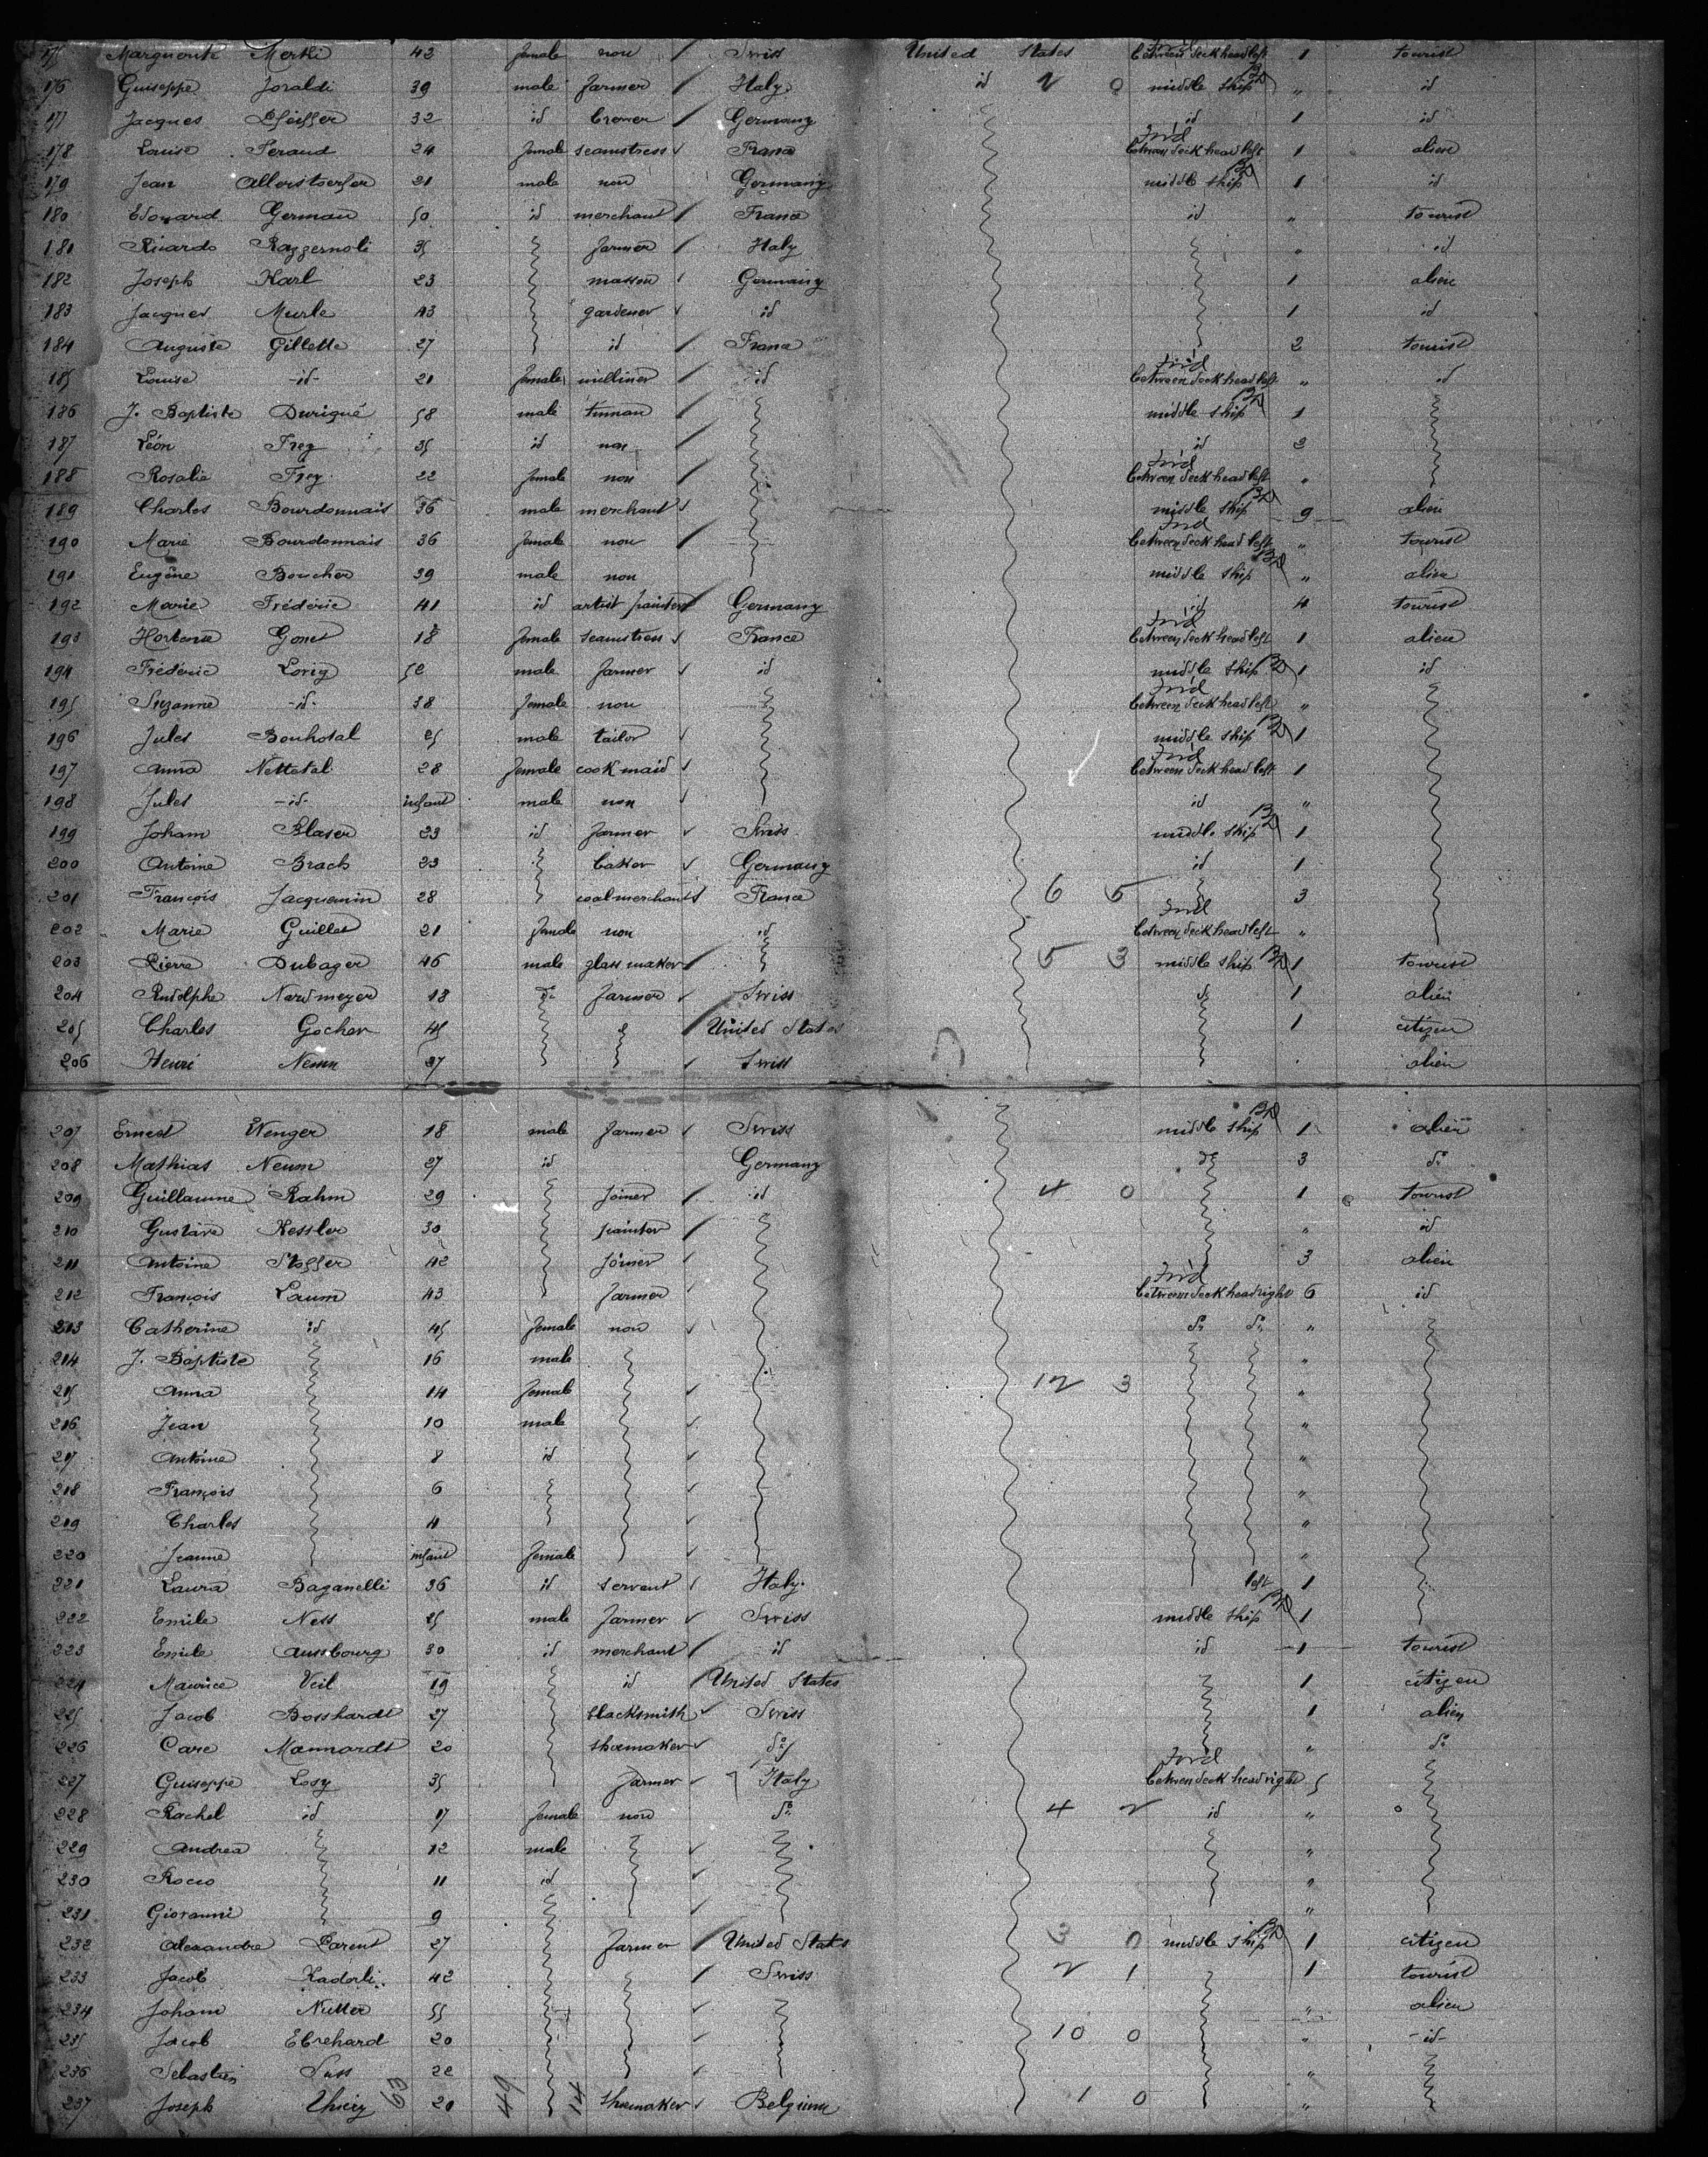 175 Marguerite Merkli 42 female non Swiss United States between deck head left 1 tourist
176 Guiseppe Joraldi 39 male farmer Italy id 2 0 middle ship " id
177 Jacques Pfeiffer 32 id Germany id 1 id
178 Louise Peraud 24 female seamstress France Fwd between deck head left 1 alien
179 Jean 21 male non Germany middle ship 1 id
180 Edouard German 50 id merchant France id " tourist
181 Ricardo Razzernoli 35 farmer Italy " id
182 Joseph Karl 23 masson Germany 1 alien
183 Jacques Murle 43 gardener id 1 id
184 Auguste Gillette 27 id France 2 tourist
185 Louise -id- 21 female milliner id Fwd between deck head left " id
186 J. Baptiste Durigué 58 male tinman middle ship 1
187 Léon Frey 35 id non id 2
188 Rosalie Frey 22 female non Fwd between deck head left "
189 Charles Bourdonnais 36 male merchant middle ship 9 alien
190 Marie Bourdonnais 36 female non Fwd between deck head left " tourist
191 Eugène Boucher 39 male non middle ship " alien
192 Marie Frédéric 41 id artist painter Germany id 4 tourist
193 Hortense Gonet 18 female seamstress France Fwd between deck head left 1 alien
194 Frédéric Lorig male farmer id middle ship 1 id
195 Suzanne -id- 38 female non Fwd between deck head left "
196 Jules Bouhotal 25 male tailor middle ship 1
197 Anna Nettetal 28 female cook maid Fwd between deck head left 1
198 Jules -id- infant male non id "
199 Joham Blaser 23 id farmer Swiss middle ship 1
200 Antoine Brach 23 baker Germany id 1
201 François Jacquemin 28 coal merchant France 6 5 3
202 Marie Guillet 21 female non id Fwd between deck head left "
203 Pierre Dubager 46 male glass maker 5 3 middle ship 1 tourist
204 Rudolphe Nardmeyer 18 do farmer Swiss do 1 alien
205 Charles Gocher 45 United States 1 citizen
206 Henri Neum 37 Swiss alien
207 Ernest Wenger 18 male farmer Swiss middle ship 1 alien
208 Mathias Neum 27 id Germany do 3 do
209 Guillaume Rahm 29 joiner id 4 0 1 tourist
210 Gustave Kessler 30 painter " id
211 Antoine Stoffer 42 joiner 3 alien
212 François Laum 43 farmer Fwd between deck head right 6 id
213 Catherine id 45 female non do do "
214 J. Baptiste 16 male "
215 Anna 14 female 12 3 "
216 Jean 10 male "
217 Antoine 8 id "
218 François 6 "
219 Charles 4 "
220 Jeanne infant female "
221 Laura Baganelli 36 id servent Italy left 1
222 Emile Ness 25 male farmer Swiss middle ship 1
223 Emile Aussbourg 30 id merchant id id 1 tourist
224 Maurice Veil 19 id United States 1 citizen
225 Jacob Bosshardt 27 blacksmith Swiss 1 alien
226 Care Mannardt 20 shoemaker do " do
227 Guiseppe Losy 35 farmer Italy Fwd between deck head right 5
228 Rachel id 17 female non do 4 2 id "
229 Andrea 12 male "
230 Rocco 11 id "
231 Giovanni 9 "
232 Alexandre Parent 27 farmer United States 3 0 middle ship 1 citizen
233 Jacob Kaderli 42 Swiss 2 1 1 tourist
234 Joham Nutter 55 " alien
235 Jacob Ebrehard 20 10 0 " -id-
236 Sebastien Suss 22 "
237 Joseph Thiery 20 shoemaker Belgium 1 0 "